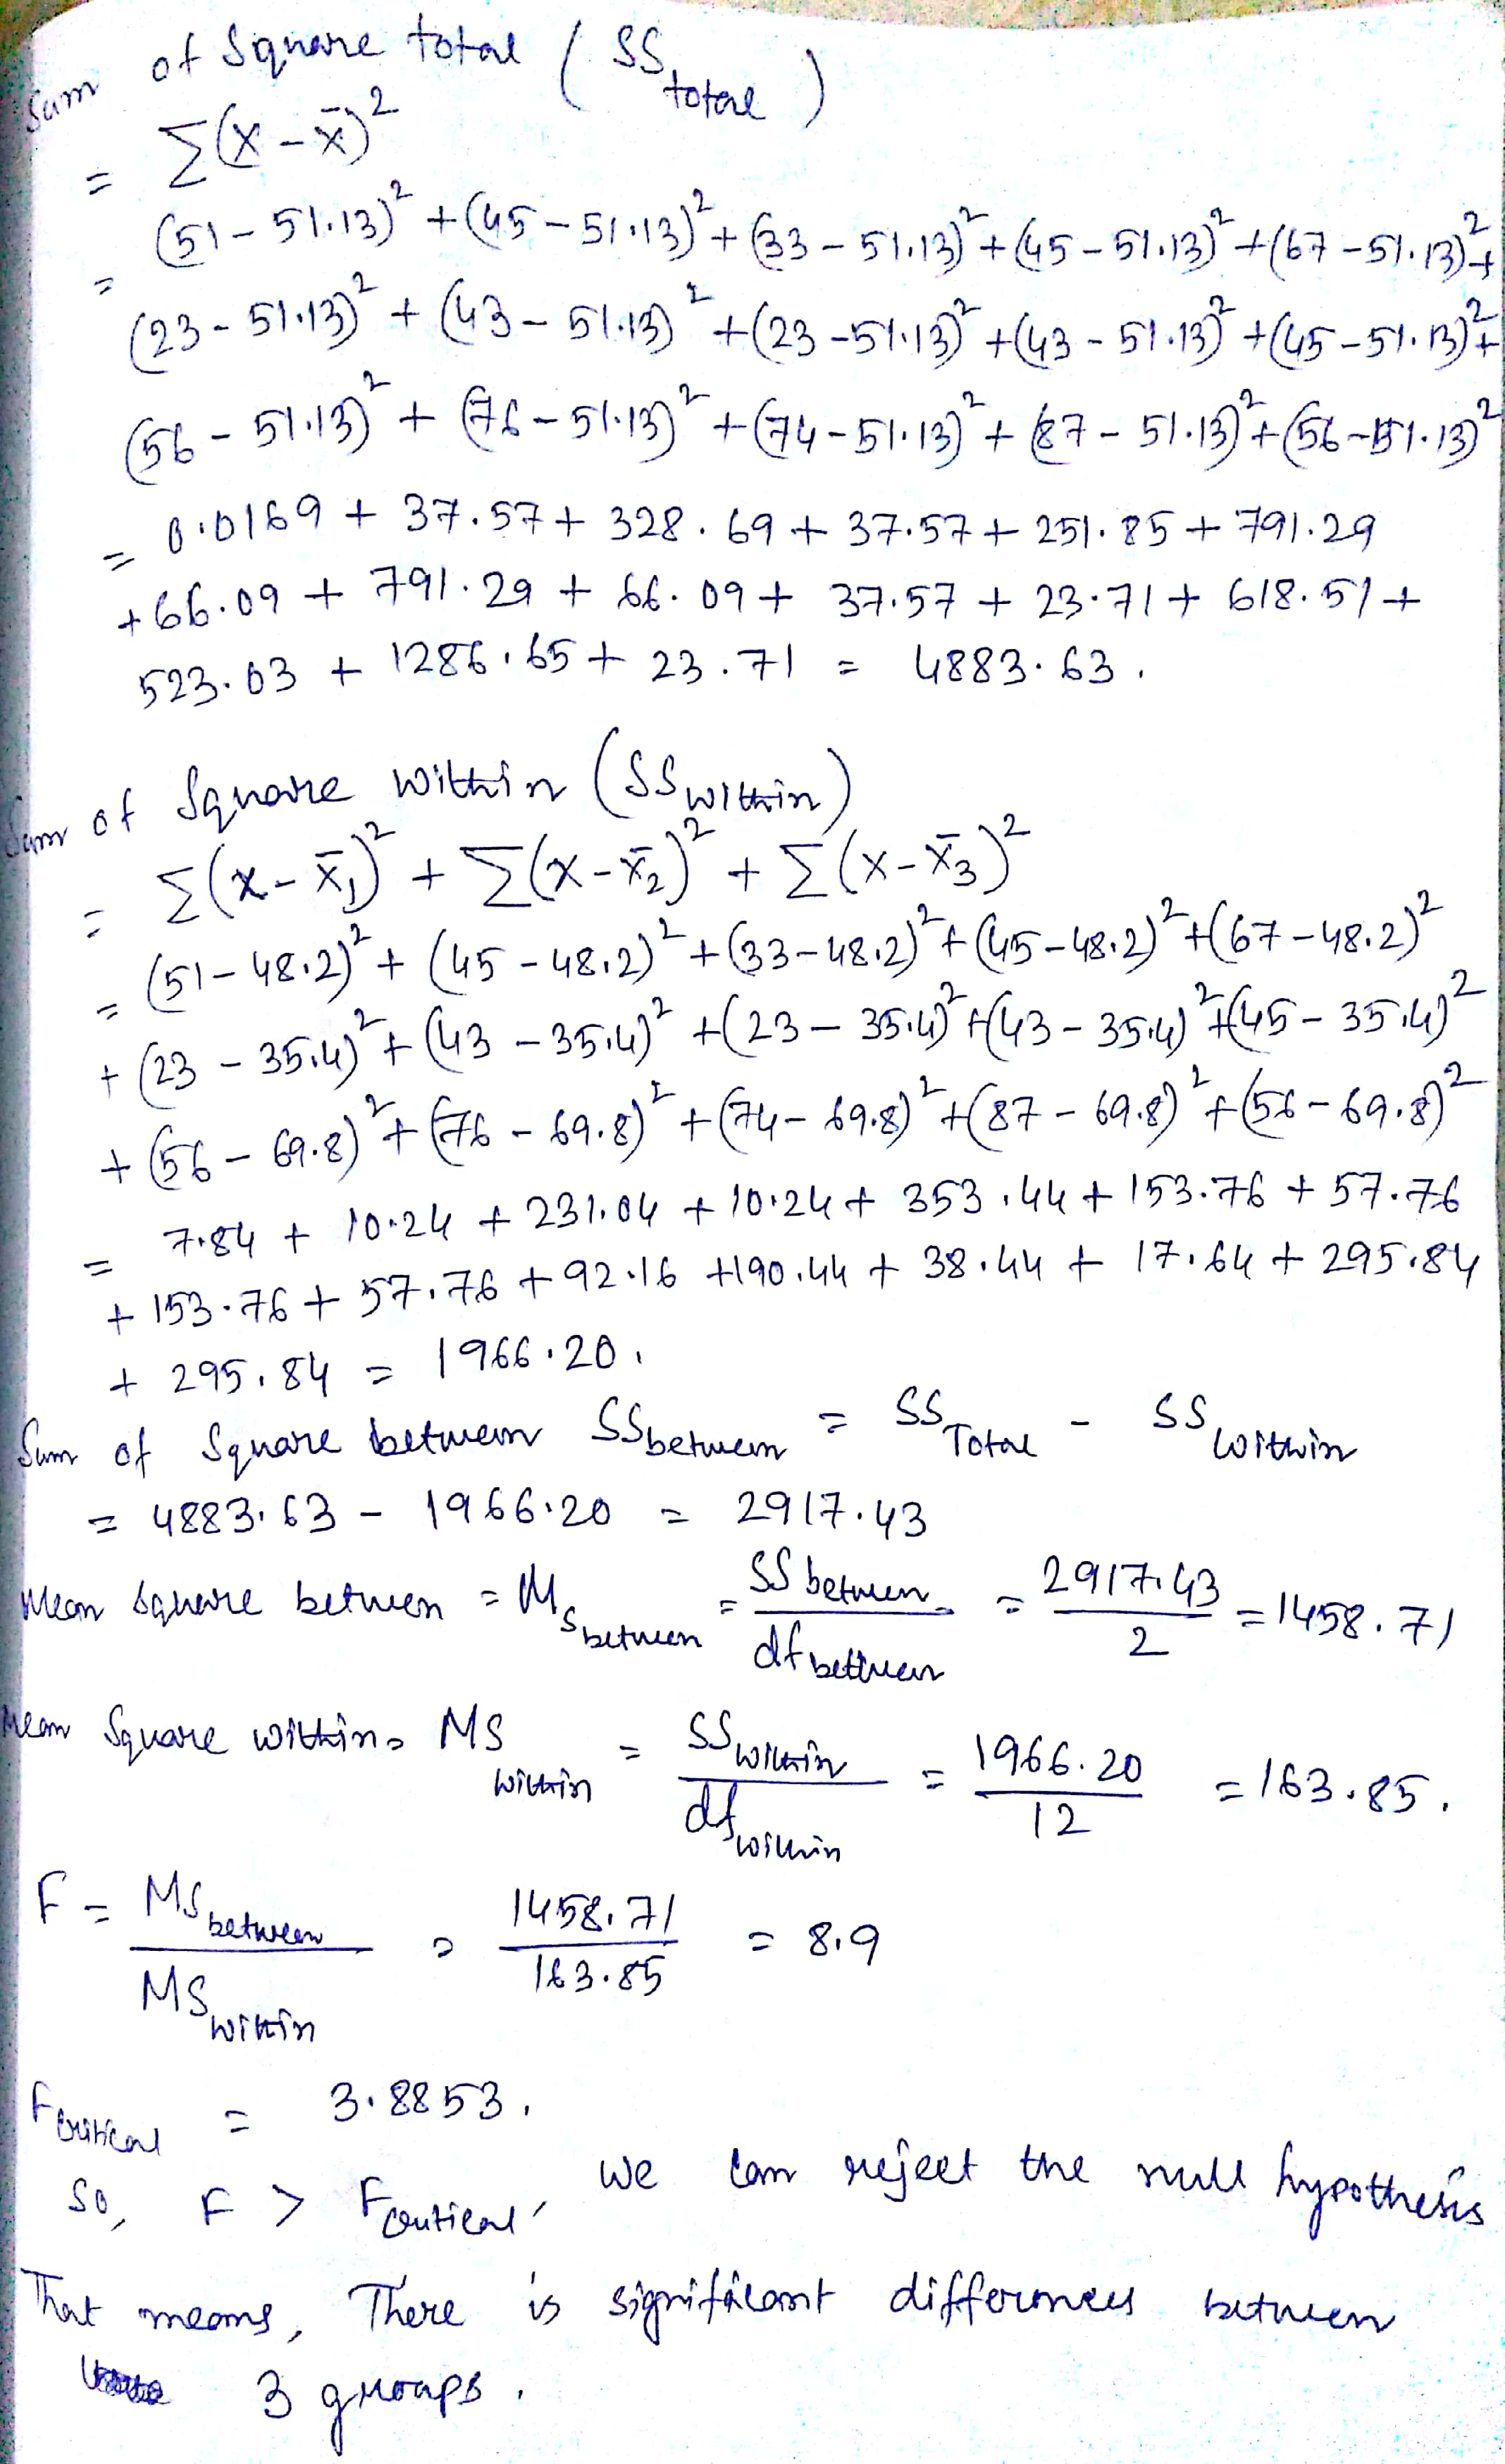 Sum of Square total (SS total)
= Σ(x-x̄)²
= (51-51.13)² + (45-51.13)² + (33-51.13)² + (45-51.13)² + (67-51.13)² +
(23-51.13)² + (43-51.13)² + (23-51.13)² + (43-51.13)² + (45-51.13)² +
(56-51.13)² + (76-51.13)² + (74-51.13)² + (87-51.13)² + (56-51.13)²
= 0.0169 + 37.57 + 328.69 + 37.57 + 251.85 + 791.29
+ 66.09 + 791.29 + 66.09 + 37.57 + 23.71 + 618.51 +
523.03 + 1286.65 + 23.71 = 4883.63.
Sum of Square within (SS within)
= Σ(x-x̄₁)² + Σ(x-x̄₂)² + Σ(x-x̄₃)²
= (51-48.2)² + (45-48.2)² + (33-48.2)² + (45-48.2)² + (67-48.2)²
+ (23-35.4)² + (43-35.4)² + (23-35.4)² + (43-35.4)² + (45-35.4)²
+ (56-69.8)² + (76-69.8)² + (74-69.8)² + (87-69.8)² + (56-69.8)²
= 7.84 + 10.24 + 231.04 + 10.24 + 353.44 + 153.76 + 57.76
+ 153.76 + 57.76 + 92.16 + 190.44 + 38.44 + 17.64 + 295.84
+ 295.84 = 1966.20.
Sum of Square between SS between = SS Total - SS within
= 4883.63 - 1966.20 = 2917.43
Mean square between = Ms between = SS between / df between = 2917.43 / 2 = 1458.71
Mean Square within = MS within = SS within / df within = 1966.20 / 12 = 163.85.
F = MS between / MS within = 1458.71 / 163.85 = 8.9
F critical = 3.8853.
So, F > F critical, we can reject the null hypothesis
That means, There is significant differences between
3 groups.